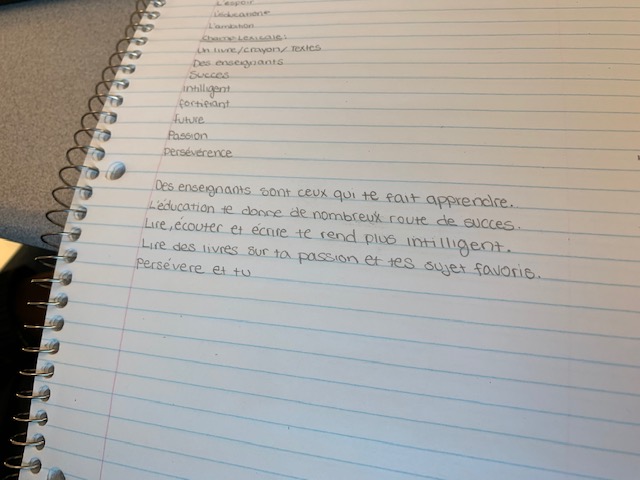 L'espoir
L'éducation
L'ambition
Champ Lexicale:
Un livre/crayon/Textes
Des enseignants
Succes
intilligent
fortifiant
future
Passion
Persévérence
Des enseignants sont ceux qui te fait apprendre.
L'éducation te donne de nombreux route de succes.
Lire, écouter et écrire te rend plus intilligent.
Lire des livres sur ta passion et tes sujet favoris.
Persévere et tu